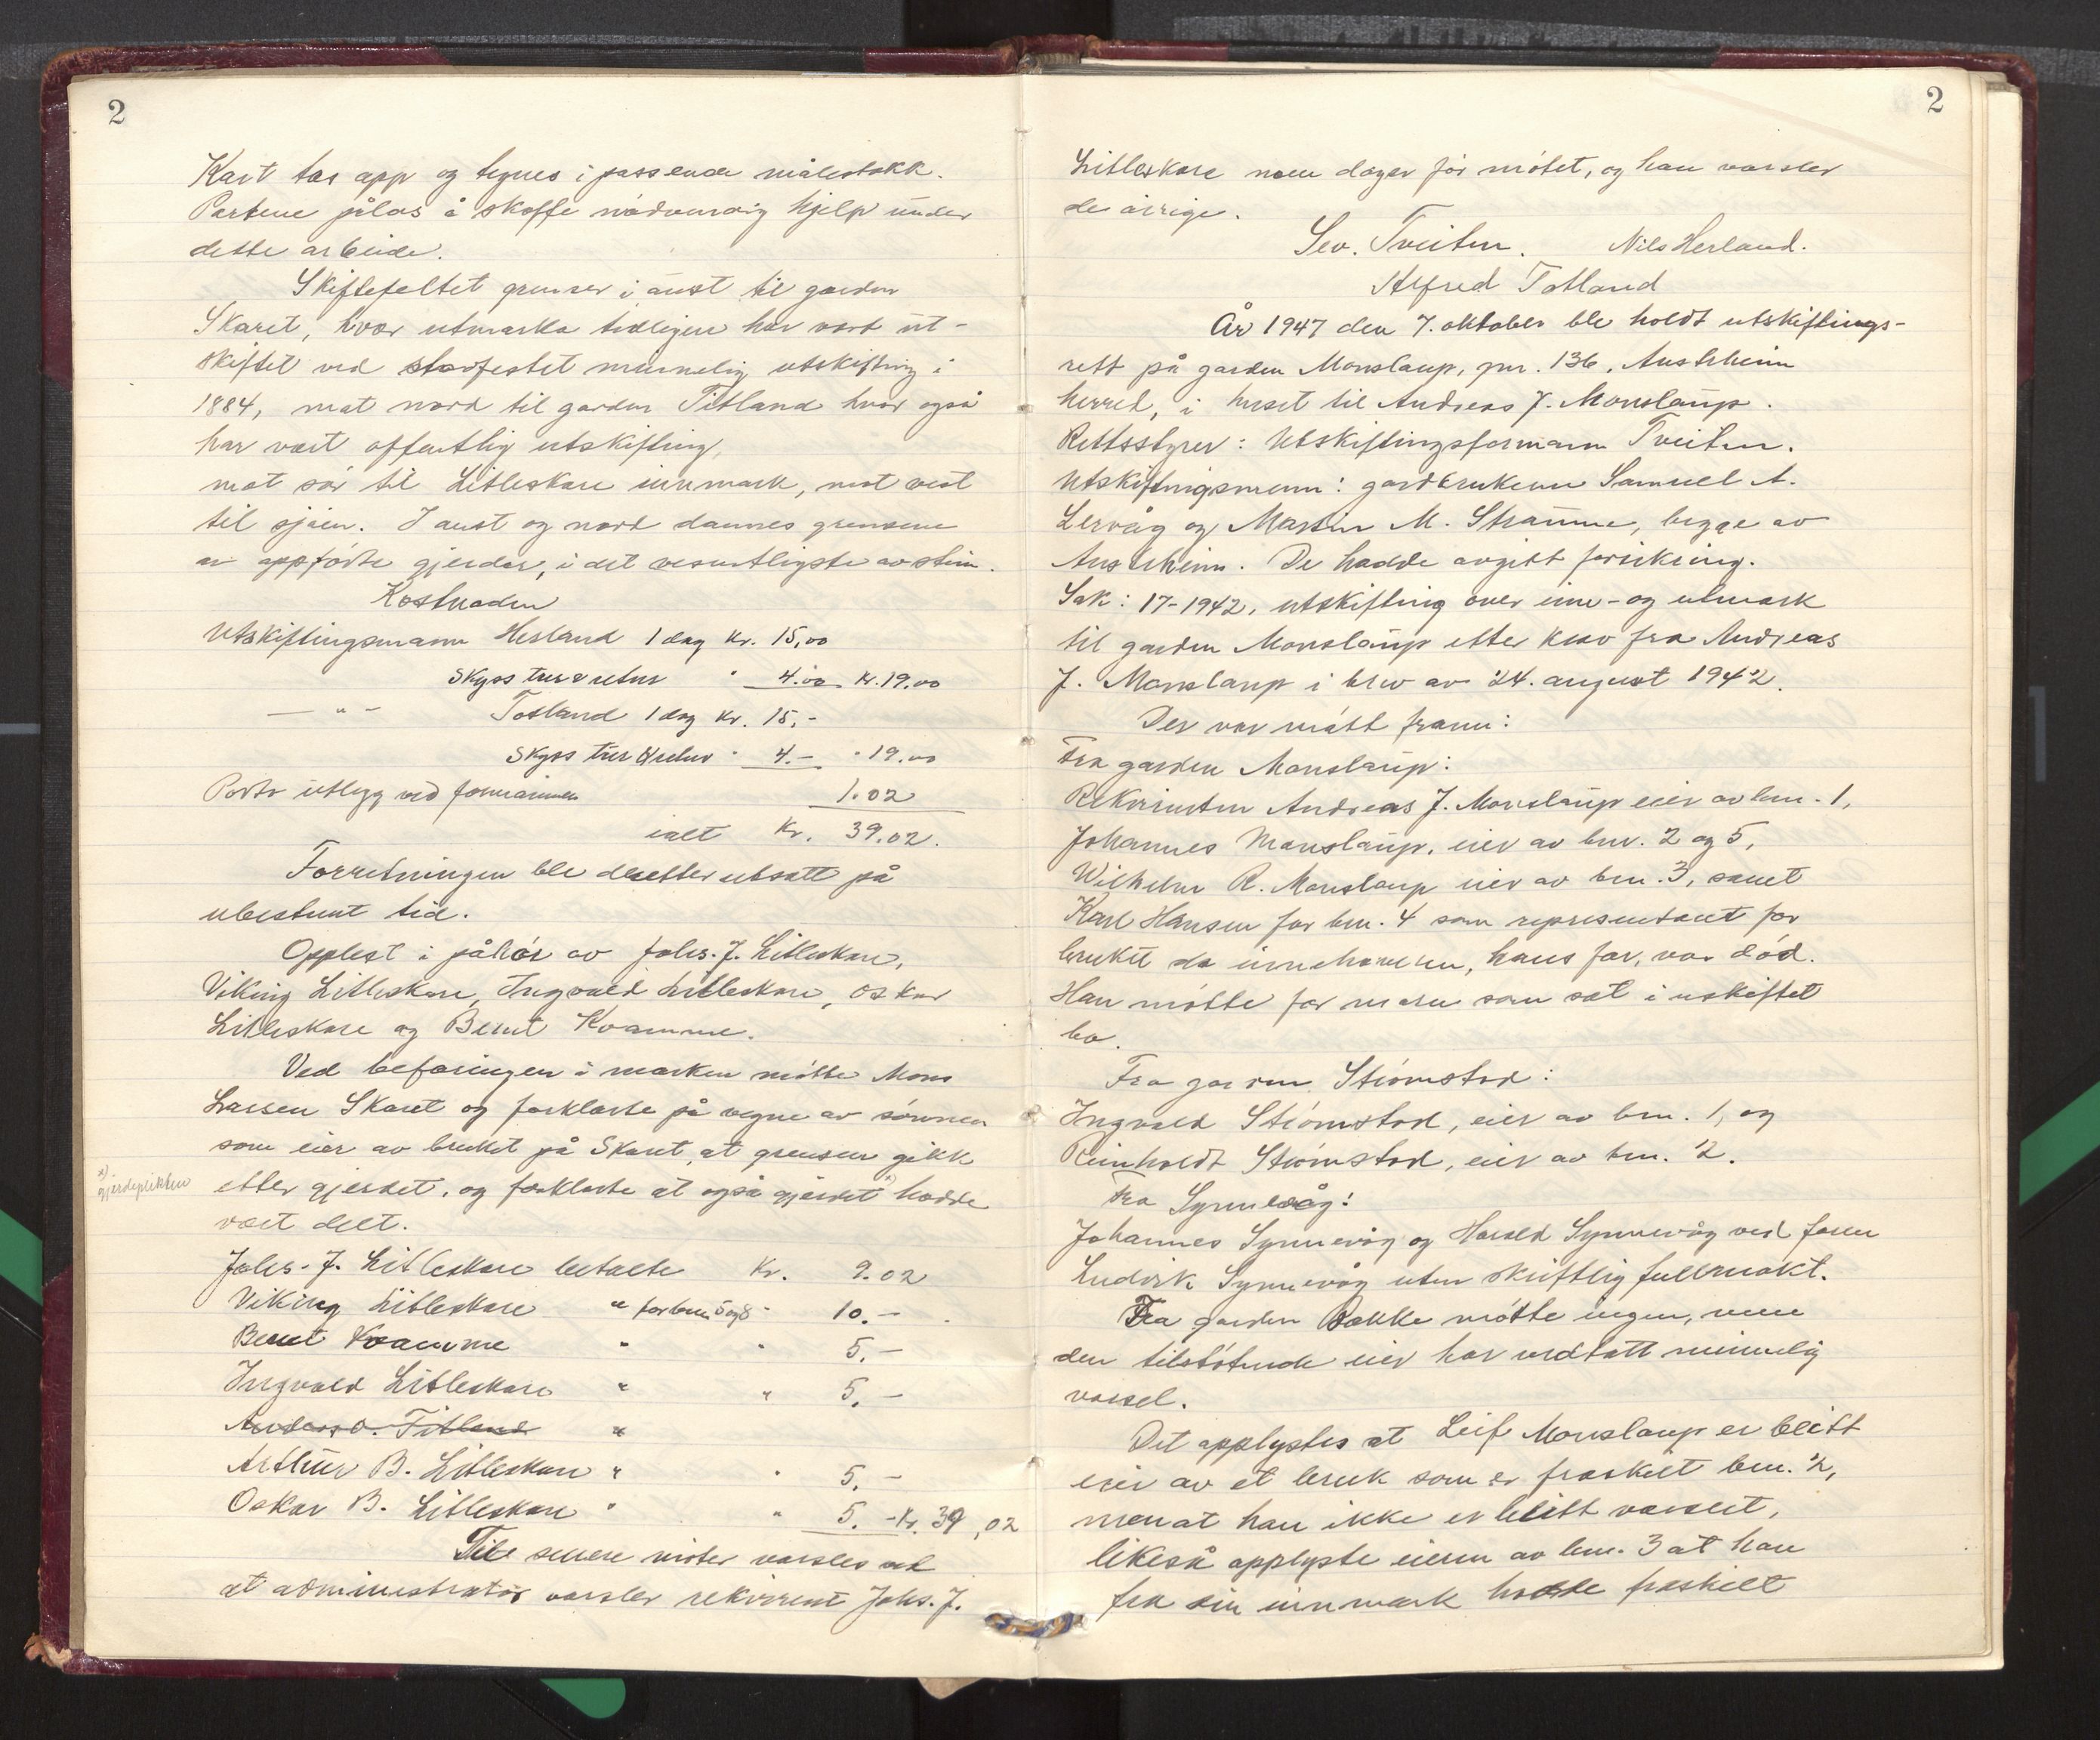 2
Kart tas opp og tegnes i passende målestokk.
Partene pålas å skaffe nødvendig hjelp under
dette arbeide.
Skiftefeltet grenser i aust til garden
Skaret, hvor utmarka tidligere har vært ut-
skiftet ved stadfestet minnelig utskifting i
1884, mot nord til garden Titland hvor også
har vært offentlig utskifting,
mot sør til Litleskare innmark, mot vest
til sjøen. I aust og nord dannes grensene
av oppførte gjerder, i det vesentligste av stein.
Kostnaden
Utskiftingsmann Herland 1 dag kr. 15,00
Skyss tur & retur " 4.00 kr. 19,00
— " — Totland 1 dag kr. 15,-
Skyss tur & retur " 4.- " 19,00
Porto utlegg ved formannen 1.02
ialt kr. 39.02.
Forretningen ble deretter utsatt på
ubestemt tid.
Opplest i påhør av Johs. J. Litleskare,
Viking Litleskare, Ingvald Litleskare, Oskar
Litleskare og Bernt Kvamme.
Ved befaringen i marken møtte Mons
Larsen Skaret og forklarte på vegne av sønnen
som eier av bruket på Skaret, at grensen gikk
x) gjerdeplikten
etter gjerdet, og forklarte at også gjerdet x) hadde
vært delt.
Johs. J. Litleskare betalte kr. 9.02
Viking Litleskare " for bnr. 5 og 8 " 10.-
Bernt Kvamme " " 5.-
Ingvald Litleskare " " 5.-
Anders O. Titland "
Arthur B. Litleskare " " 5.-
Oskar B. Litleskare " " 5.- kr. 39,02
Til senere møter varsles ved
at administrator varsler rekvirent Johs. J.
2
Litleskare noen dager før møtet, og han varsler
de øvrige.
Sev. Tveiten. Nils Herland.
Alfred Totland
År 1947 den 7. oktober ble holdt utskiftings-
rett på garden Monslaup, gnr. 136, Austrheim
herred, i huset til Andreas J. Monslaup.
Rettsstyrer: Utskiftingsformann Tveiten.
Utskiftingsmenn: gardbrukerne Samuel A.
Lervåg og Martin M. Straume, begge av
Austrheim. De hadde avgitt forsikring.
Sak: 17-1942, utskifting over inn- og utmark
til garden Monslaup etter krav fra Andreas
J. Monslaup i brev av 24. august 1942.
Der var møtt fram:
Fra garden Monslaup:
Rekvirenten Andreas J. Monslaup eier av bnr. 1,
Johannes Monslaup, eier av bnr. 2 og 5,
Wilhelm R. Monslaup eier av bnr. 3, samt
Karl Hansen for bnr. 4 som representant for
bruket da innehaveren, hans far, var død.
Han møtte for moren som sat i uskiftet
bo.
Fra garden Strømstad:
Ingvald Strømstad, eier av bnr. 1, og
Reinholdt Strømstad, eier av bnr. 2.
Fra Synnevåg:
Johannes Synnevåg og Harald Synnevåg ved faren
Ludvik Synnevåg uten skriftlig fullmakt.
Fra garden Bakke møtte ingen, men
den tilstøtende eier har vedtatt minnelig
varsel.
Det opplystes at Leif Monslaup er blitt
eier av et bruk som er fraskilt bnr. 2,
men at han ikke er blitt varslet,
likeså opplyste eieren av bnr. 3 at han
fra sin innmark hadde fraskilt